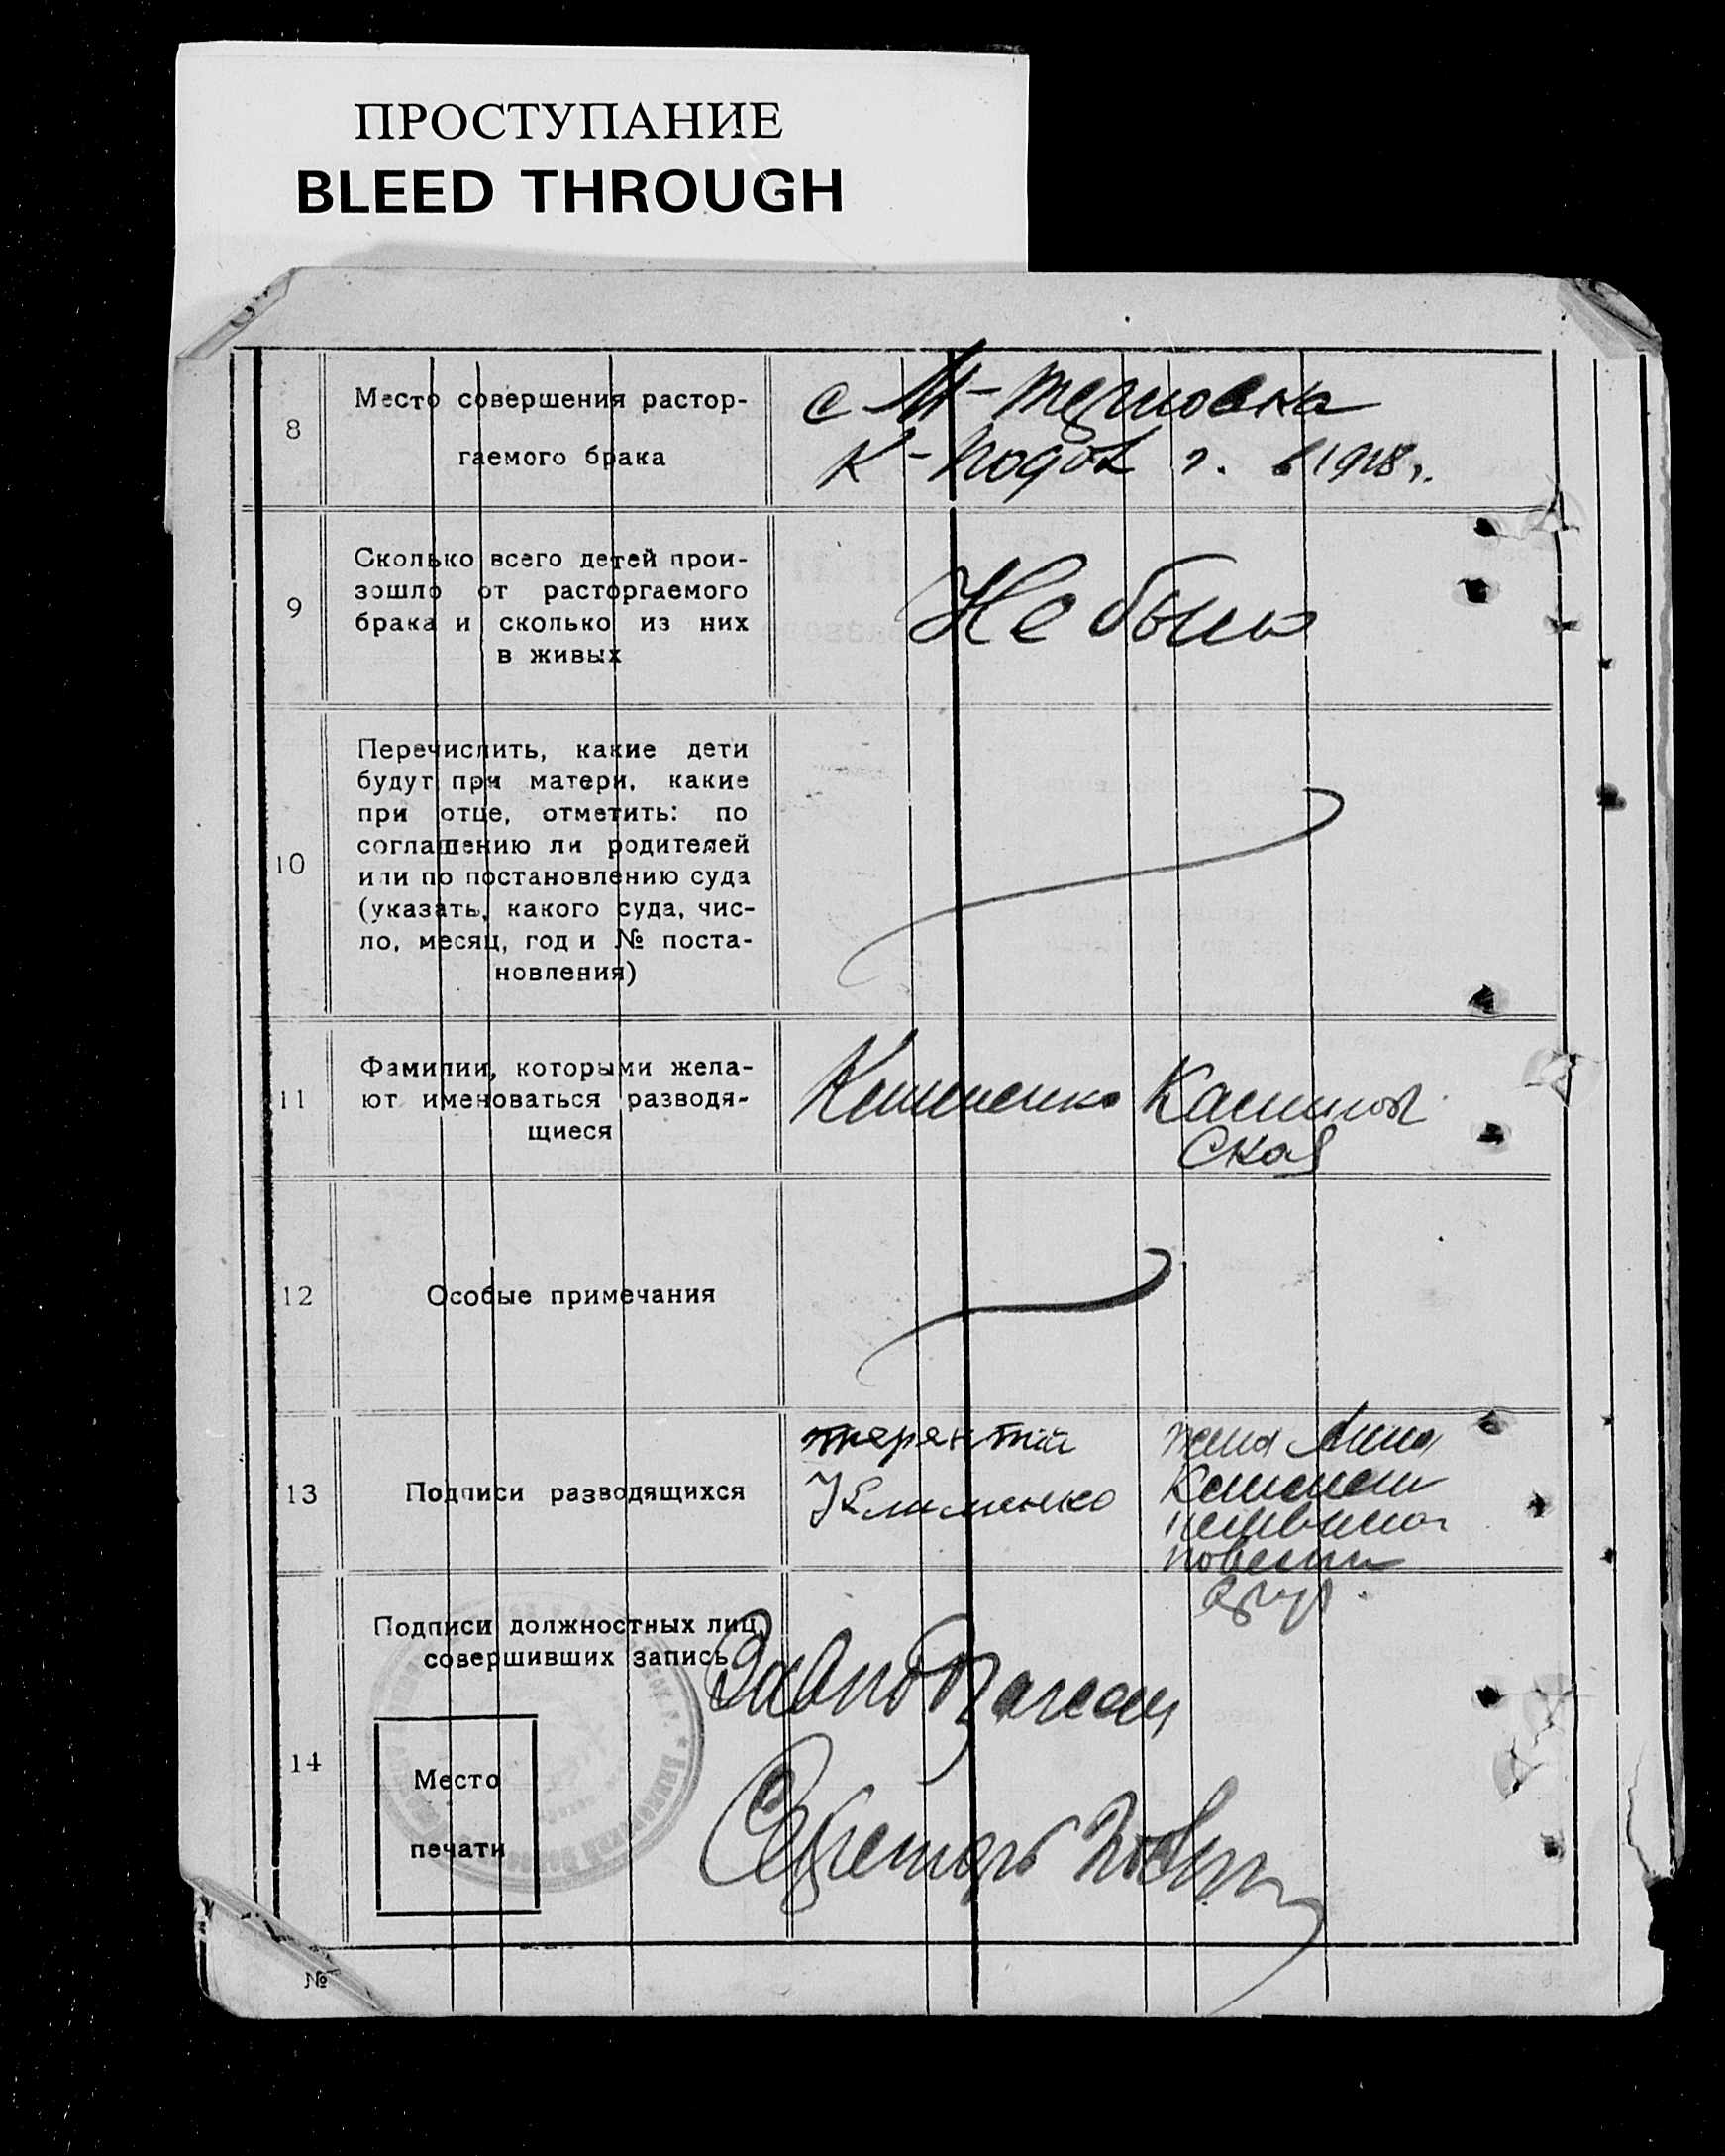 ПРОСТУПАНИЕ
BLEED THROUGH
8
Место совершения растор-
гаемого брака
с М-Терновка
К-Подол г. в 1918 г.
9
Сколько всего детей прои-
зошло от расторгаемого
брака и сколько из них
в живых
Не было
10
Перечислить, какие дети
будут при матери, какие
при отце, отметить: по
соглашению ли родителей
или по постановлению суда
(указать, какого суда, чис-
ло, месяц, год и № поста-
новления)
11
Фамилии, которыми жела-
ют именоваться разводя-
щиеся
Клименко
ская
12
Особые примечания
13
Подписи разводящихся
терентій
Клименко
Анна
14
Подписи должностных лиц,
совершивших запись
Место
печати
Секретарь
№